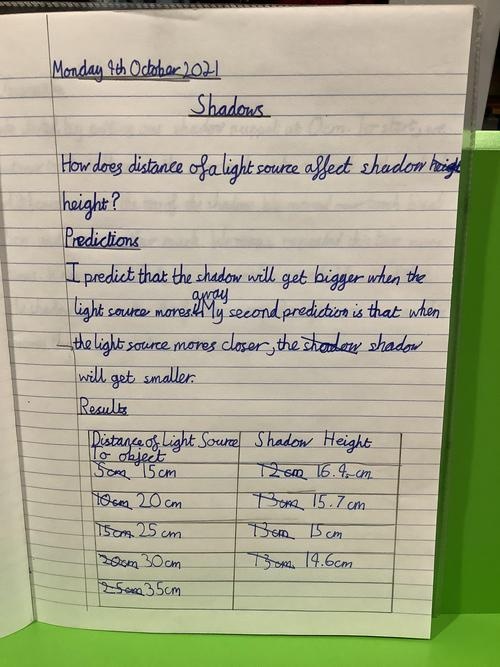 Monday 4th October 2021
Shadows
How does distance of a light source affect shadow heigh
height?
Predictions
I predict that the shadow will get bigger when the
light source moves away. My second prediction is that when
the light source moves closer, the shadow shadow
will get smaller.
Results
Distance of Light Source To object
Shadow Height
5cm 15cm
12cm 16.4cm
10cm 20cm
13cm 15.7cm
15cm 25cm
13cm 15cm
20cm 30cm
13cm 14.6cm
25cm 35cm